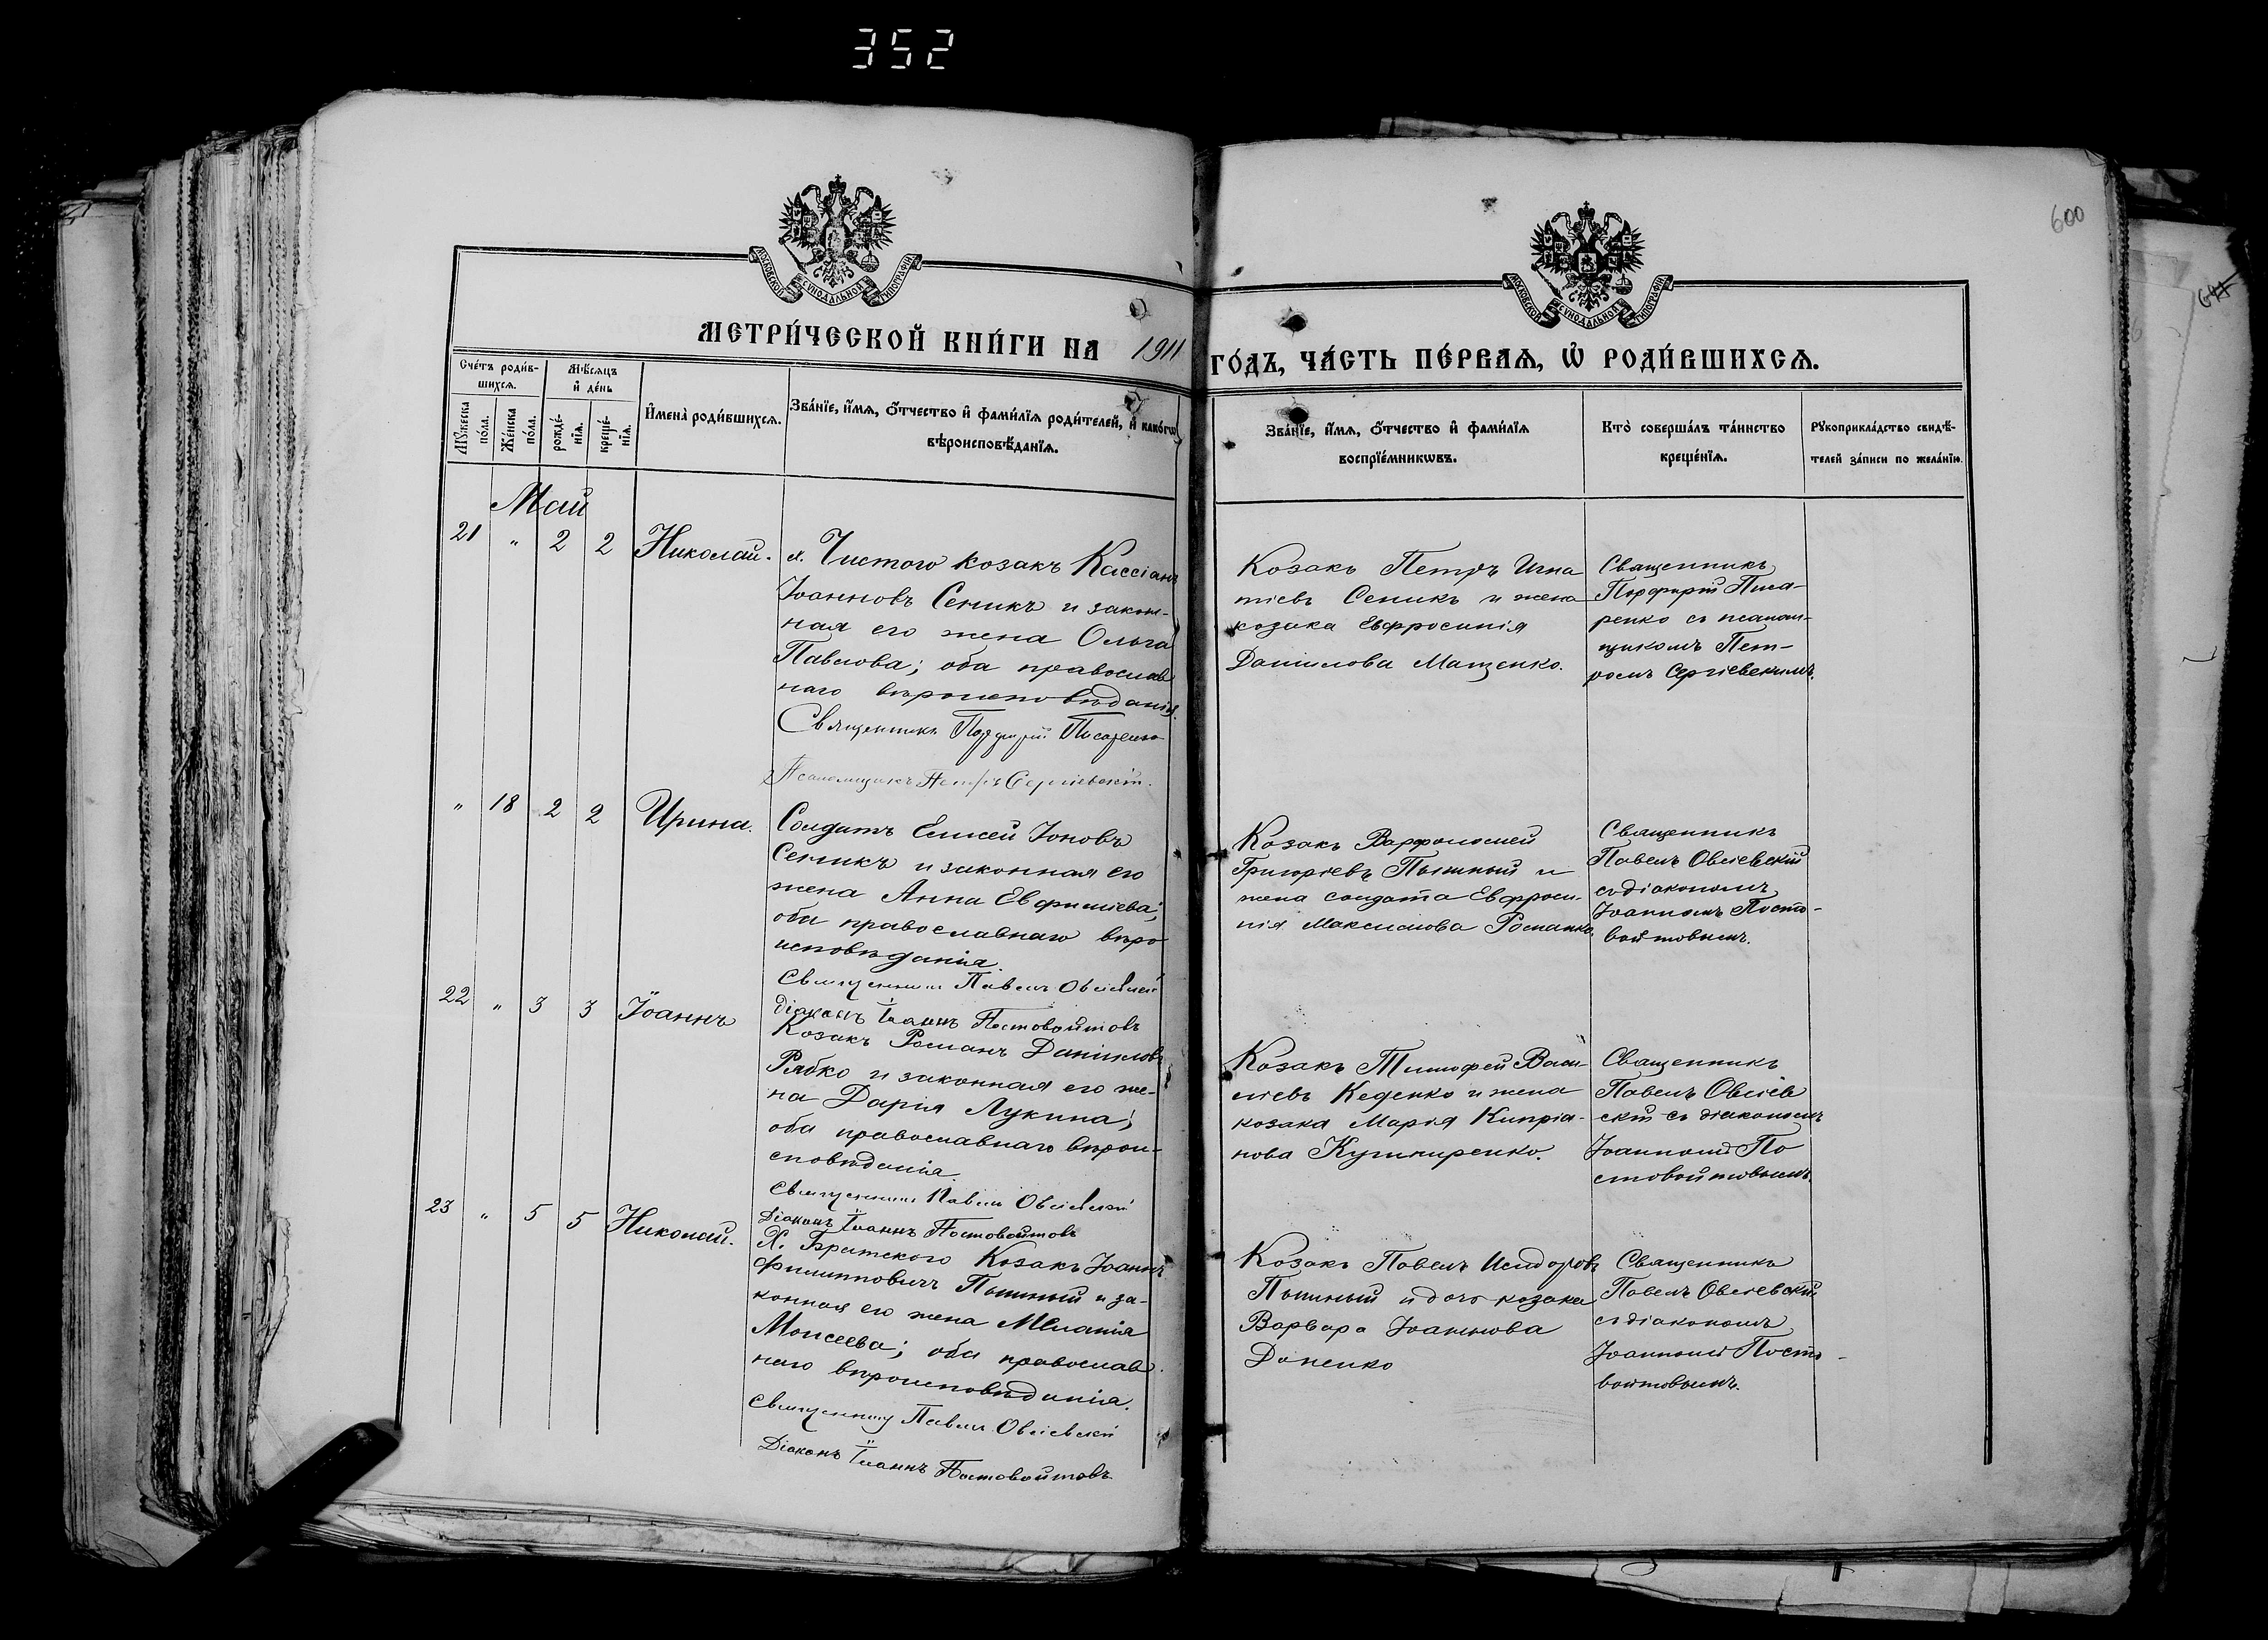 352
600
МОСКОВСКОЙ СУНОДАЛЬНОЙ ТИПОГРАФІИ
МОСКОВСКОЙ СУНОДАЛЬНОЙ ТИПОГРАФІИ
МЕТРИ́ЧЕСКОЙ КНИ́ГИ НА 1911
ГО́ДЪ, ЧА́СТЬ ПЕ́РВАѦ, Ѡ҆ РОДИ́ВШИХСѦ.
Сче́тъ роди́в-
шихсѧ.
Мѣ́сѧцъ
и҆ де́нь
Мꙋ́жеска
по́ла.
Же́нска
по́ла.
рожде́-
нїѧ.
креще́-
нїѧ.
И҆мена̀ роди́вшихсѧ.
Зва́нїе, и҆́мѧ, ѻ҆́тчество и҆ фами́лїѧ роди́телей, и҆ како́гѡ
вѣроисповѣ́данїѧ.
Зва́нїе, и҆́мѧ, ѻ҆́тчество и҆ фами́лїѧ
воспрїе́мникѡвъ.
Кто̀ соверша́лъ та́инство
креще́нїѧ.
Рꙋкоприкла́дство свидѣ́-
телей за́писи по жела́нїю.
Май
21 " 2 2 Николай.
х. Чистого козакъ Кассіанъ
Іоанновъ Сеникъ и закон-
ная его жена Ольга
Павлова; оба православ
наго вѣроисповѣданія.
Священникъ Порфирій Писаренко
Псаломщикъ Петръ Сергіевскій.
Козакъ Петръ Игна
тіевъ Сеникъ и жена
козака Евфросинія
Данилова Маценко.
Священникъ
Порфирій Писа-
ренко съ псалом-
щикомъ Пет-
ромъ Сергіевскимъ.
" 18 2 2 Ирина.
Солдатъ Елисей Іоновъ
Сеникъ и законная его
жена Анна Евфиміева;
оба православнаго вѣро
исповѣданія.
Священникъ Павелъ Овсіевскій
Діаконъ Іоаннъ Постовойтовъ
Козакъ Варфоломей
Григоріевъ Пышный и
жена солдата Евфроси-
нія Максимова Романко.
Священникъ
Павелъ Овсіевскій
съ діакономъ
Іоанномъ Посто-
войтовымъ.
22 " 3 3 Іоаннъ
Козакъ Романъ Даниловъ
Рябко и законная его же-
на Дарія Лукина;
оба православнаго вѣрои-
сповѣданія.
Священникъ Павелъ Овсіевскій
Діаконъ Іоаннъ Постовойтовъ
Козакъ Тимофей Васи-
ліевъ Кеденко и жена
козака Марія Кипріа-
нова
Священникъ
Павелъ Овсіев
скій съ діакономъ
Іоанномъ По
стовойтовымъ.
23 " 5 5 Николай.
Х. Братского Козакъ Іоаннъ
Филипповичъ Пышный и за-
конная его жена Меланія
Моисеева; оба православ
наго вѣроисповѣданія.
Священникъ Павелъ Овсіевскій
Діаконъ Іоаннъ Постовойтовъ
Козакъ Павелъ Исидоровъ
Пышный и дочь козака
Варвара Іоаннова
Доненко
Священникъ
Павелъ Овсіевскій
съ діакономъ
Іоанномъ Посто-
войтовымъ.